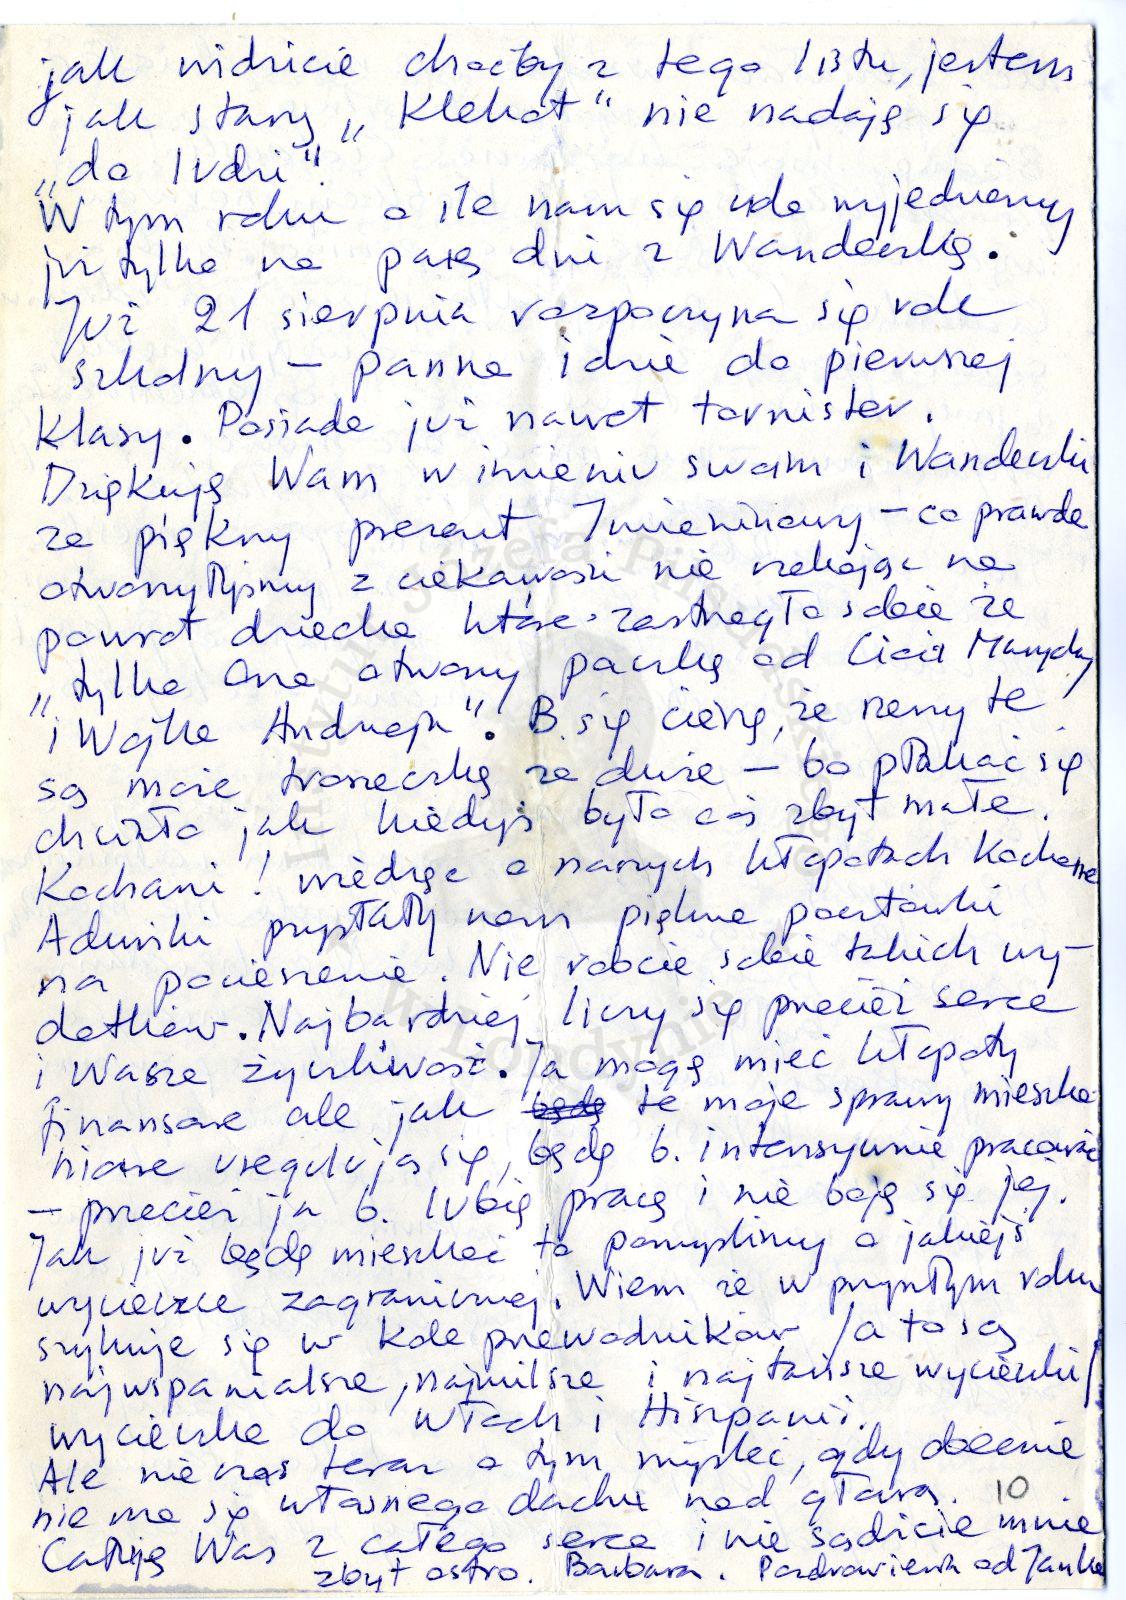 jak widzicie choćby z tego listu, jestem
jak stary „Klekot" nie nadaję się
„do ludzi".
W tym roku o ile nam się uda wyjedziemy
już tylko na parę dni z Wandeczką.
Już 21 sierpnia rozpoczyna się rok
szkolny – panna idzie do pierwszej
klasy. Posiada już nawet tornister.
Dziękuję Wam w imieniu swoim i Wandeczki
za piękny prezent Imieninowy – co prawda
otworzyłyśmy z ciekawości nie czekając na
powrót dziecka które zastrzegło sobie że
„tylko Ona otworzy paczkę od Cioci Marychy
i Wojka Andrzeja". B. się cieszę, że rzeczy te
są może troszeczkę za duże – bo płakać się
chciało jak kiedyś było coś zbyt małe.
Kochani! wiedząc o naszych kłopotach Kochane
przysłały nam piękne pocztówki
na pocieszenie. Nie róbcie sobie takich wy-
datków. Najbardziej liczy się przecież serce
i Wasze życzliwość. Ja mogę mieć kłopoty
finansowe ale jak będę te moje sprawy mieszka-
niowe uregulują się, będę b. intensywnie pracować
– przecież ja b. lubię pracę i nie boję się jej.
Jak już będę mieszkać to pomyślimy o jakiejś
wycieczce zagranicznej. Wiem że w przyszłym roku
szykuje się w kole przewodników /a to są
najwspanialsze, najmilsze i najtańsze wycieczki/
wycieczka do Włoch i Hiszpanii.
Ale nie czas teraz o tym myśleć, gdy obecnie
nie ma się własnego dachu nad głową. 10
Całuję Was z całego serca i nie sądźcie mnie
zbyt ostro. Barbara. Pozdrowienia od Janka
Instytut Józefa Piłsudskiego
w Londynie